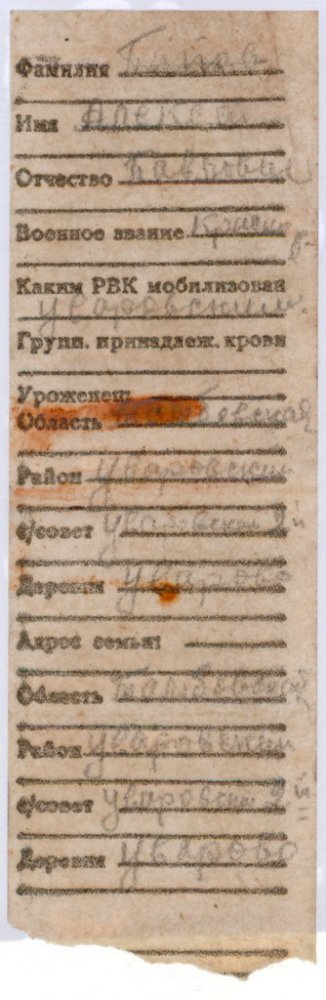 Фамилия
Имя Алексей
Отчество Павлович
Военное звание
Каким РВК мобилизован
Уваровским
Групп. принадлеж. крови
Уроженец:
Область Тамбовская
Район Уваровский
с/совет Уваровский 2й
Деревня Уварово
Адрес семьи:
Область Тамбовская
Район Уваровский
с/совет Уваровский 2
Деревня Уварово